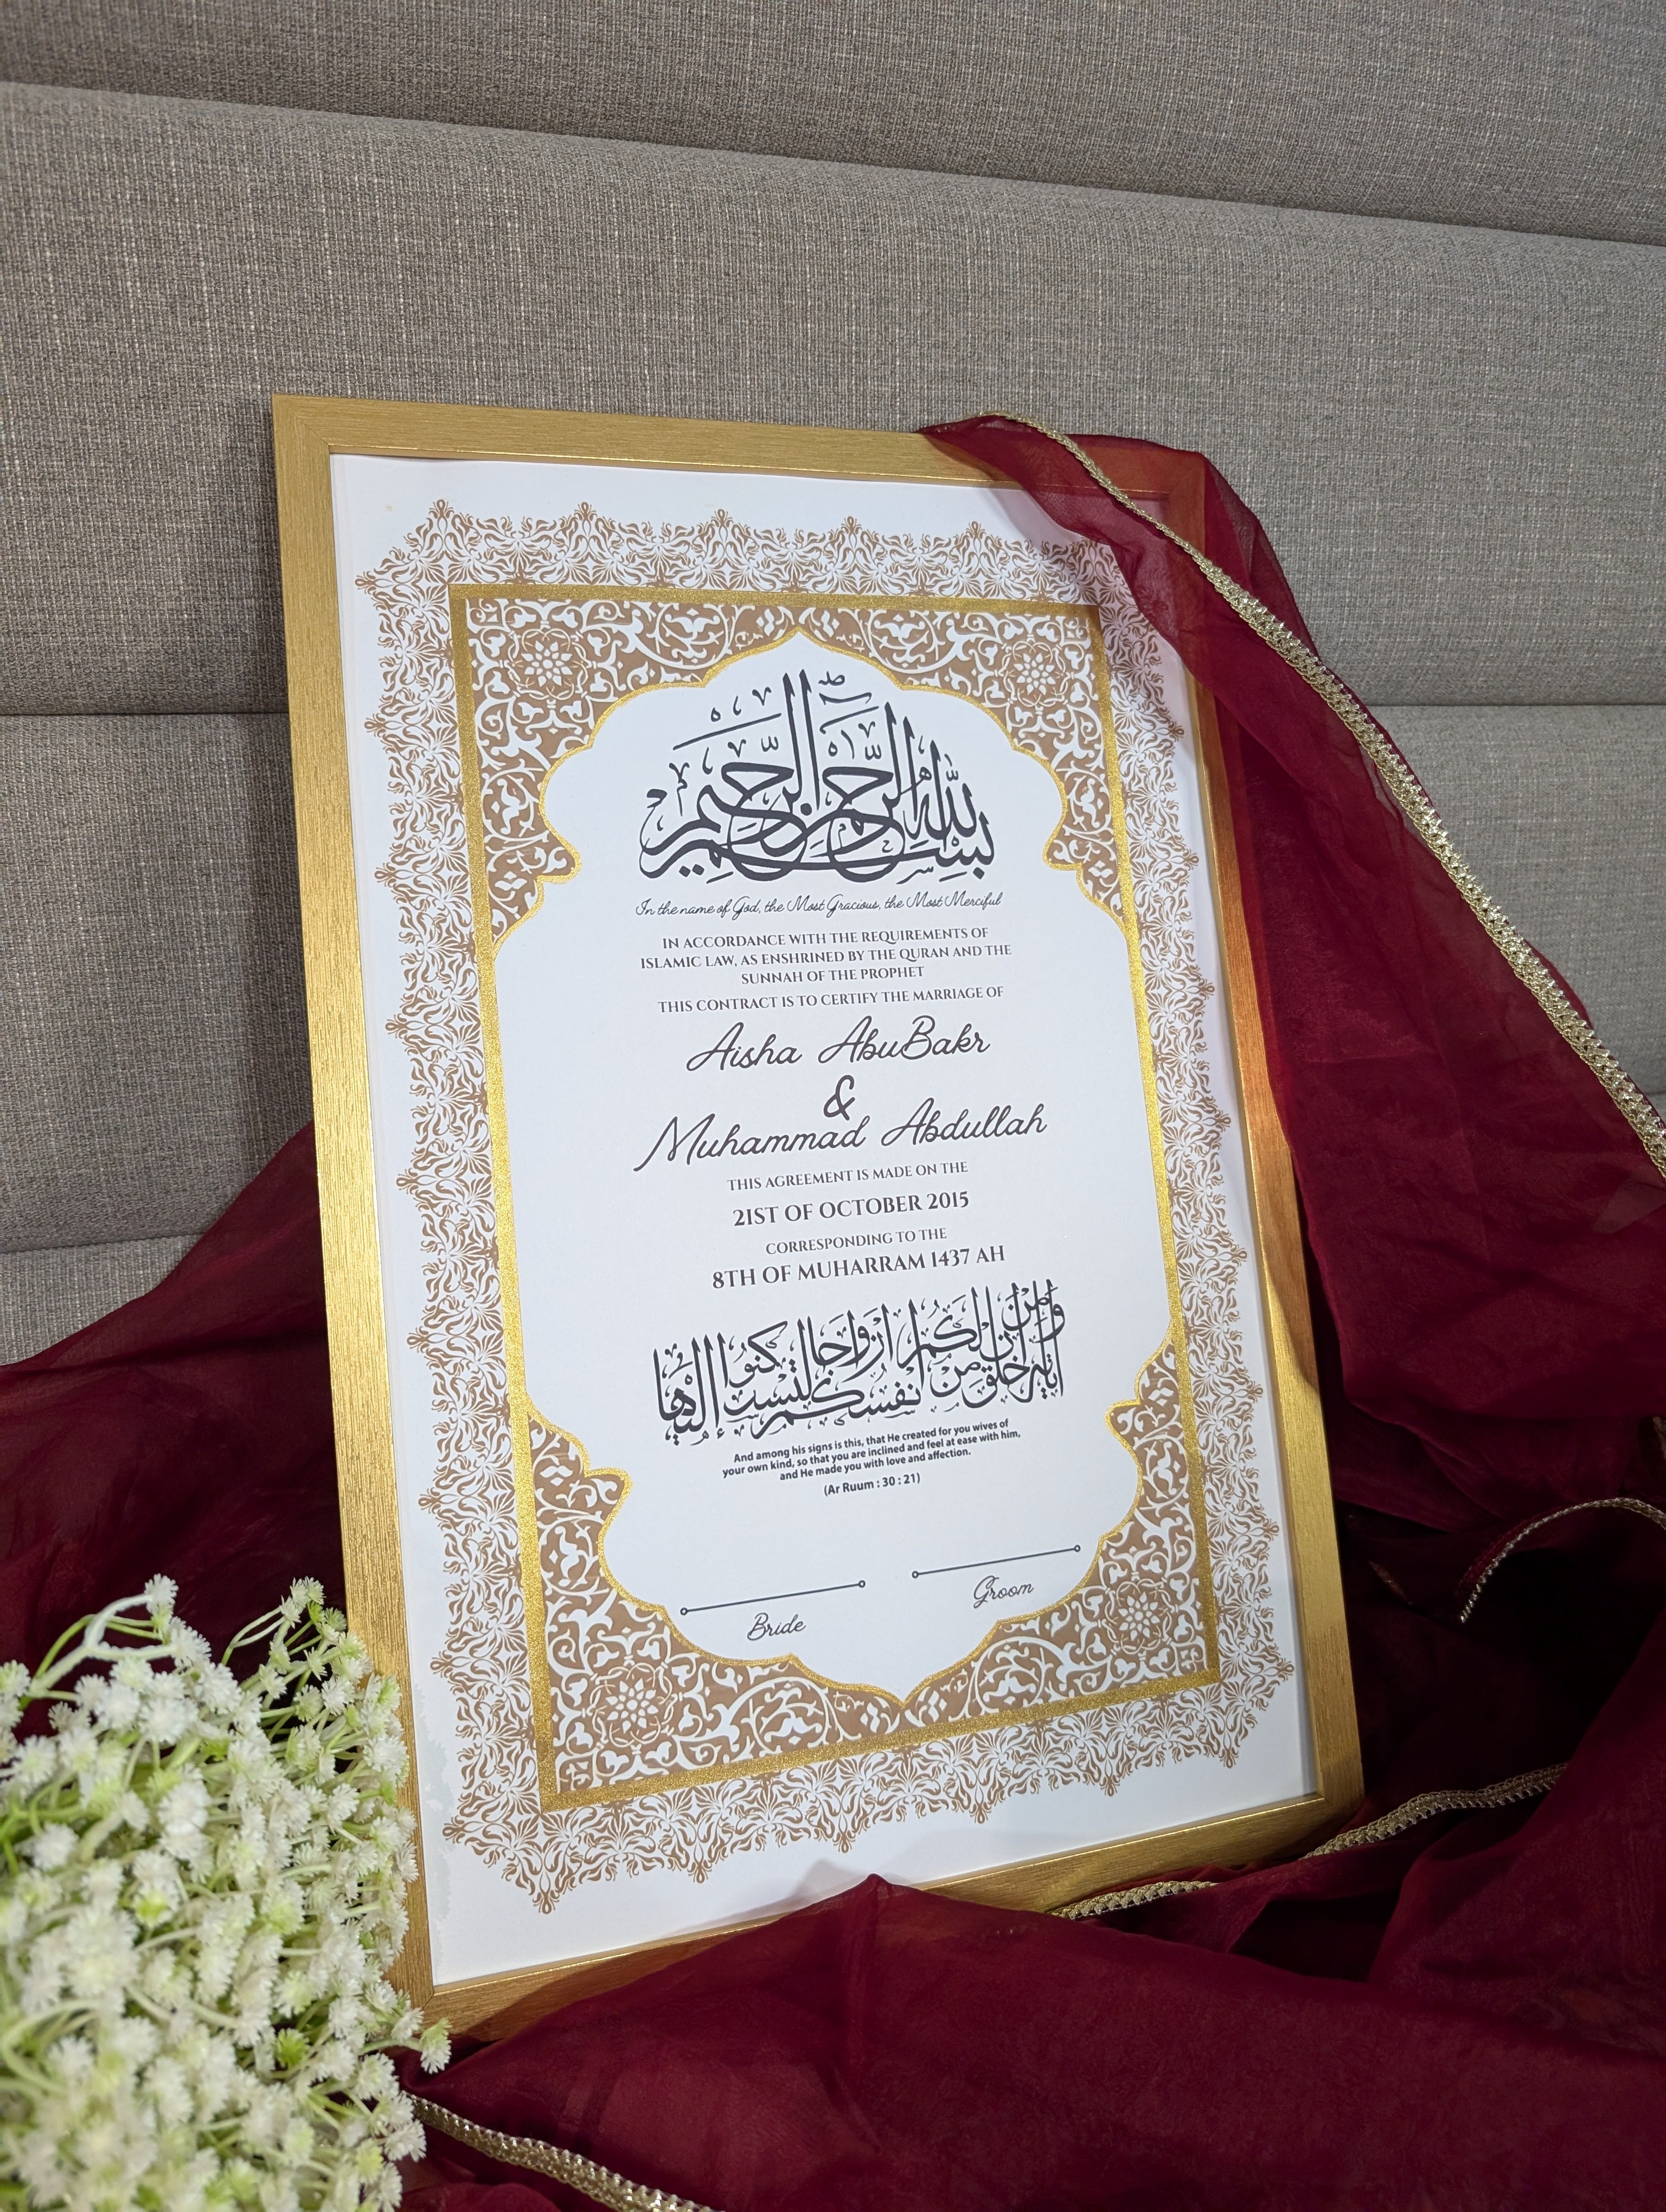 بسم الله الرحمن الرحيم
In the name of God, the Most Gracious, the Most Merciful
IN ACCORDANCE WITH THE REQUIREMENTS OF
ISLAMIC LAW, AS ENSHRINED BY THE QURAN AND THE
SUNNAH OF THE PROPHET
THIS CONTRACT IS TO CERTIFY THE MARRIAGE OF
Aisha AbuBakr
&
Muhammad Abdullah
THIS AGREEMENT IS MADE ON THE
21ST OF OCTOBER 2015
CORRESPONDING TO THE
8TH OF MUHARRAM 1437 AH
ومن آياته أن خلق لكم من أنفسكم أزواجا لتسكنوا إليها
And among his signs is this, that He created for you wives of
your own kind, so that you are inclined and feel at ease with him,
and He made you with love and affection.
(Ar Ruum : 30 : 21)
Bride
Groom